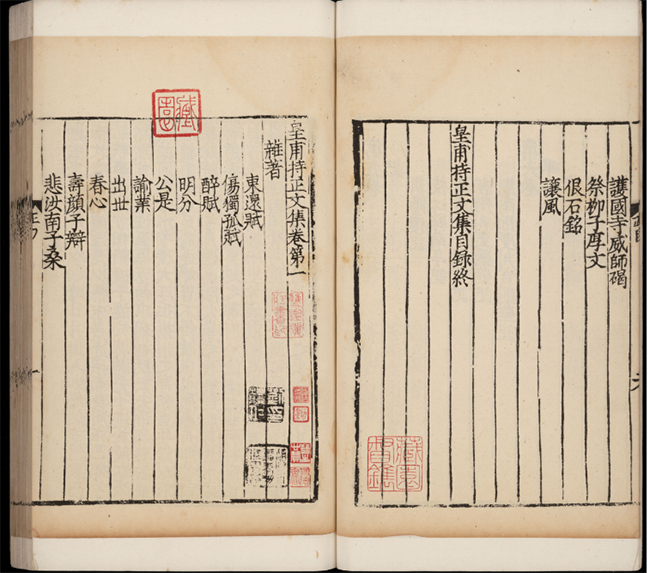 護國寺威師碣
祭柳子厚文
佷石銘
讓風
皇甫持正文集目録終
皇甫持正文集卷第一
雜著
東還賦
傷獨孤賦
醉賦
明分
公是
諭業
出世
春心
壽顔子辯
悲汝南子桑